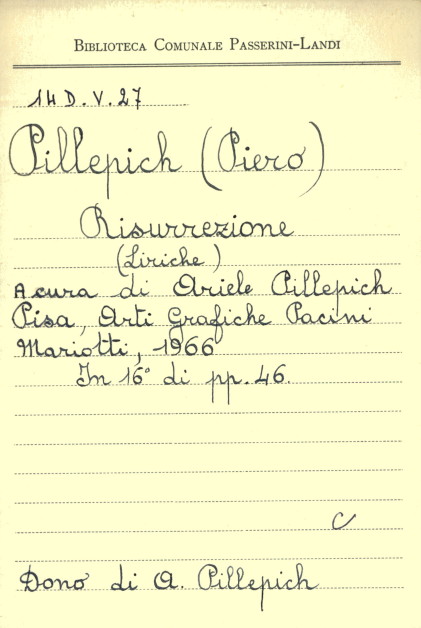 BIBLIOTECA COMUNALE PASSERINI-LANDI
14 D. V. 27
Pillepich (Piero)
Risurrezione
(Liriche)
A cura di Ariele Pillepich
Pisa, Arti Grafiche Pacini
Mariotti, 1966
In 16° di pp. 46.
C
Dono di A. Pillepich